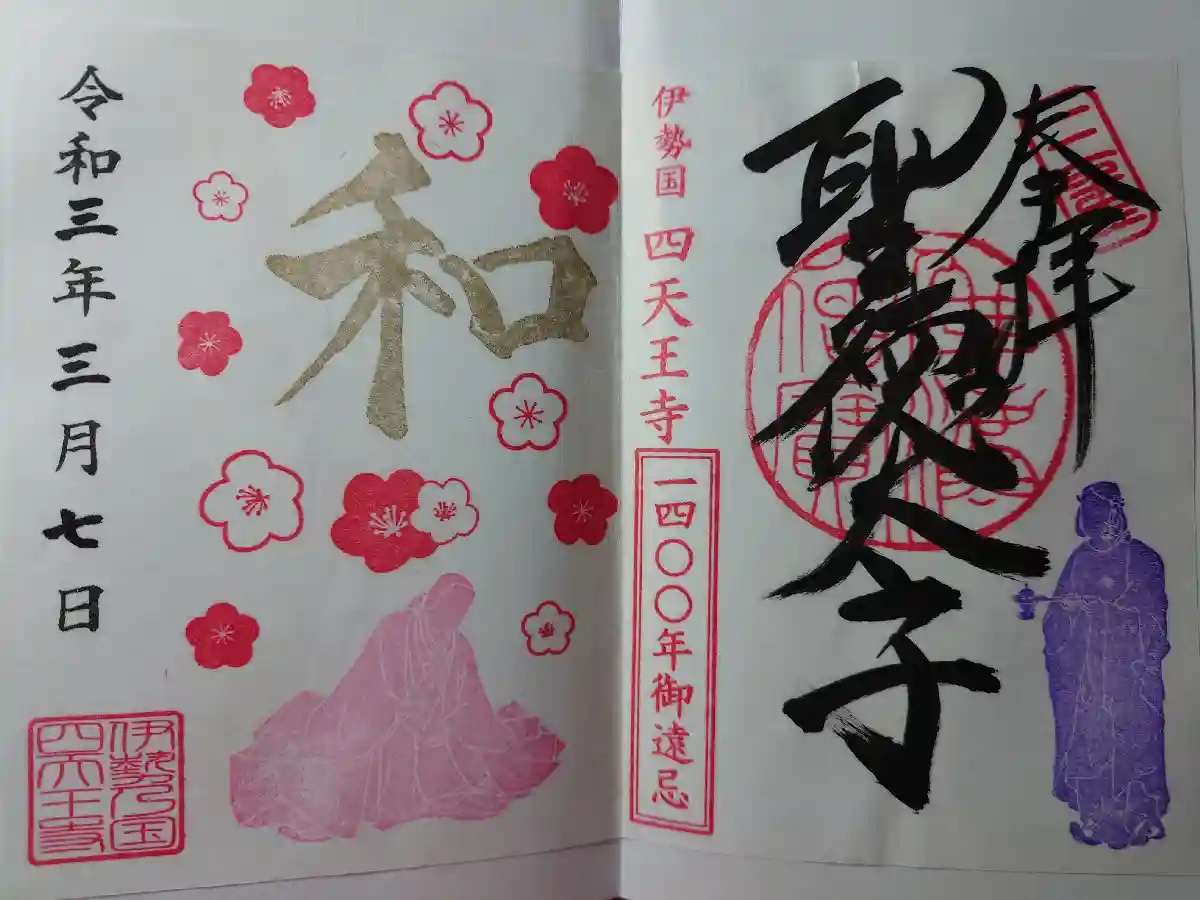 奉拝
聖徳太子
伊勢国 四天王寺
一四〇〇年御遠忌
和
令和三年三月七日
伊勢乃国
四天王寺